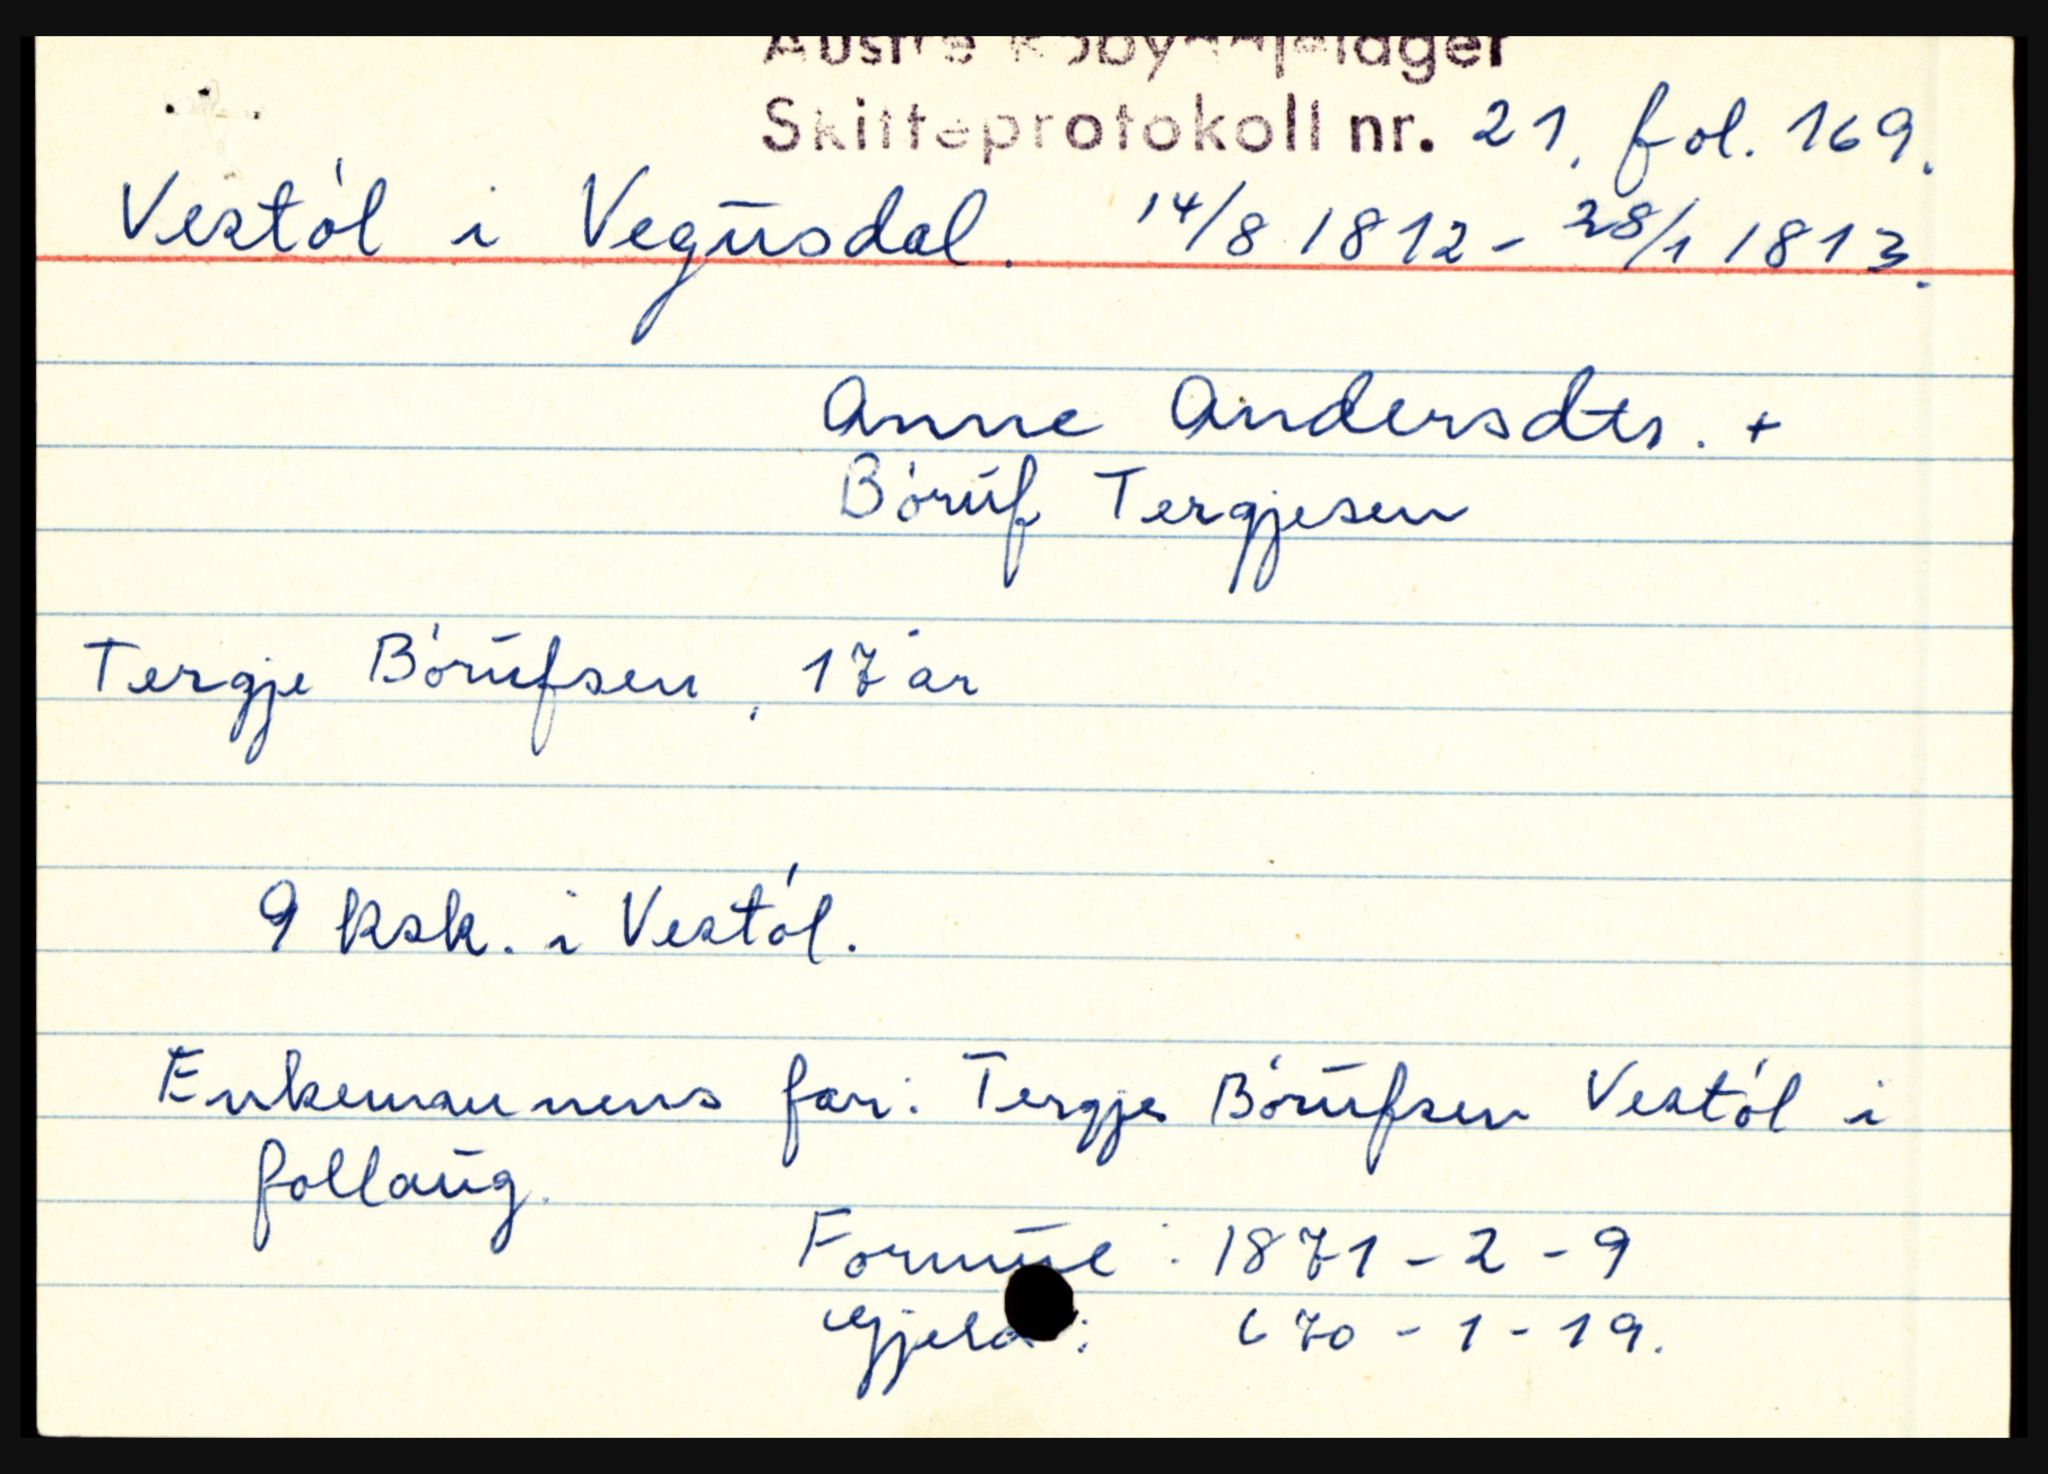 Austre Robyggjelager
Skifteprotokoll nr. 21. fol. 169.
Vestól i Vegusdal. 14/8 1812 - 28/1 1813.
Anne Andersdtr. +
Bóruf Tergjesen
Tergje Bórufsen, 17 år
9 ksk. i Vestól.
Enkemannens far: Tergje Bórufsen Vestól i
follaug.
Formue: 1871 - 2 - 9
Gjeld: 670 - 1 - 19.